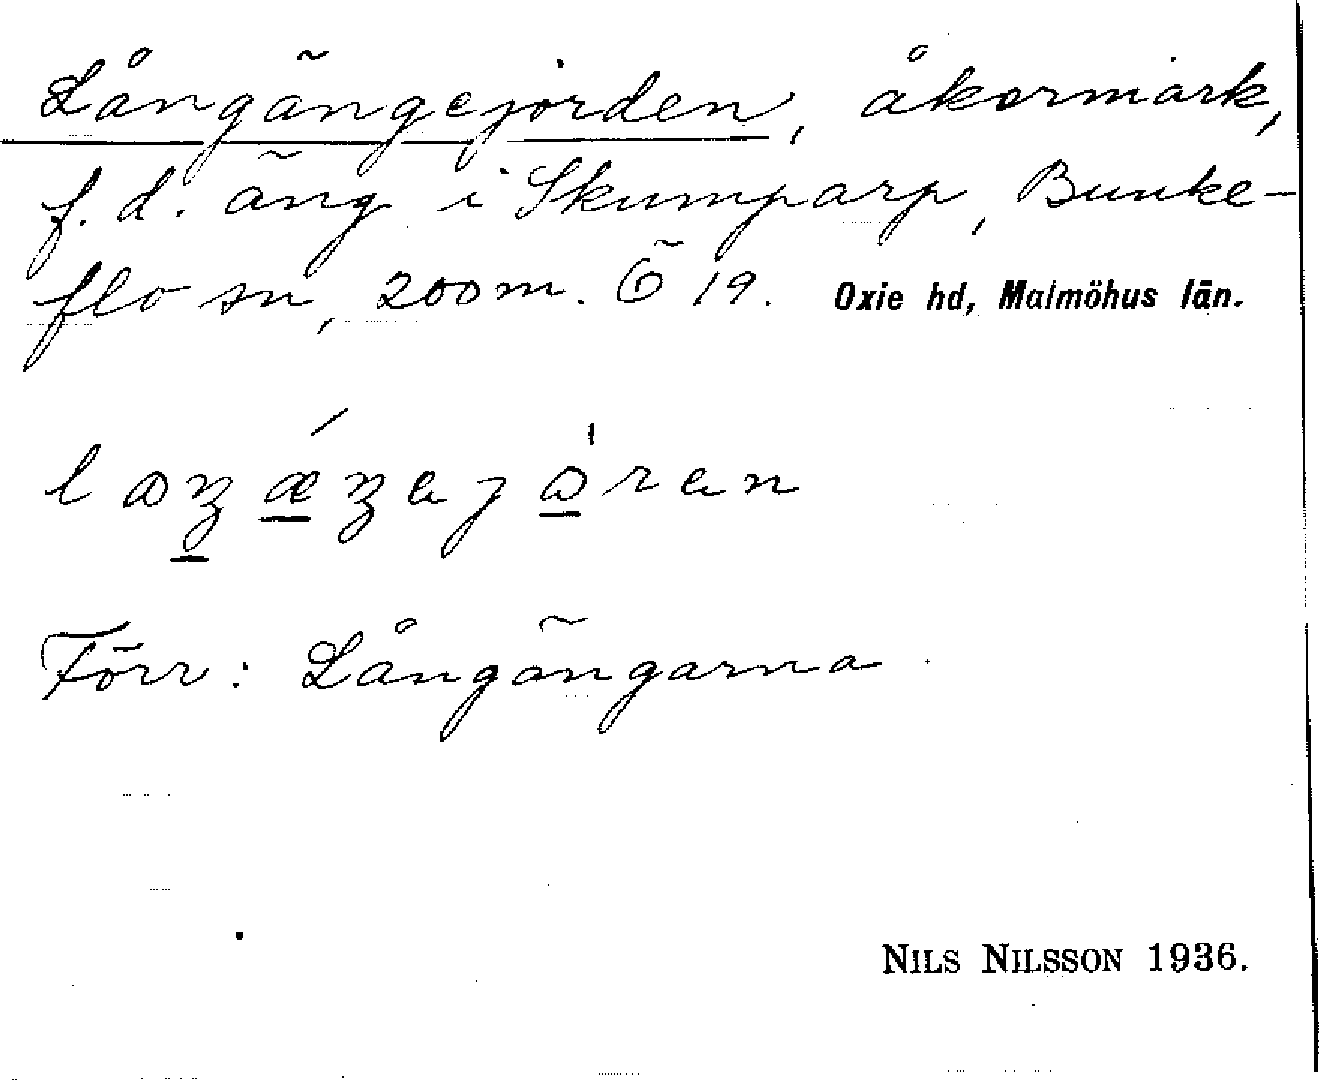 Långängejorden, åkermark,
f.d. äng i Skumparp, Bunke-
flo sn, 200 m. Ö 19. Oxie hd, Malmöhus län.
Förr: Långängarna
NILS NILSSON 1936.